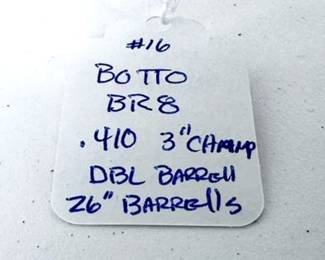 #16
BOTTO
BR8
.410 3" CHAMP
DBL BARREll
26" BARREllS